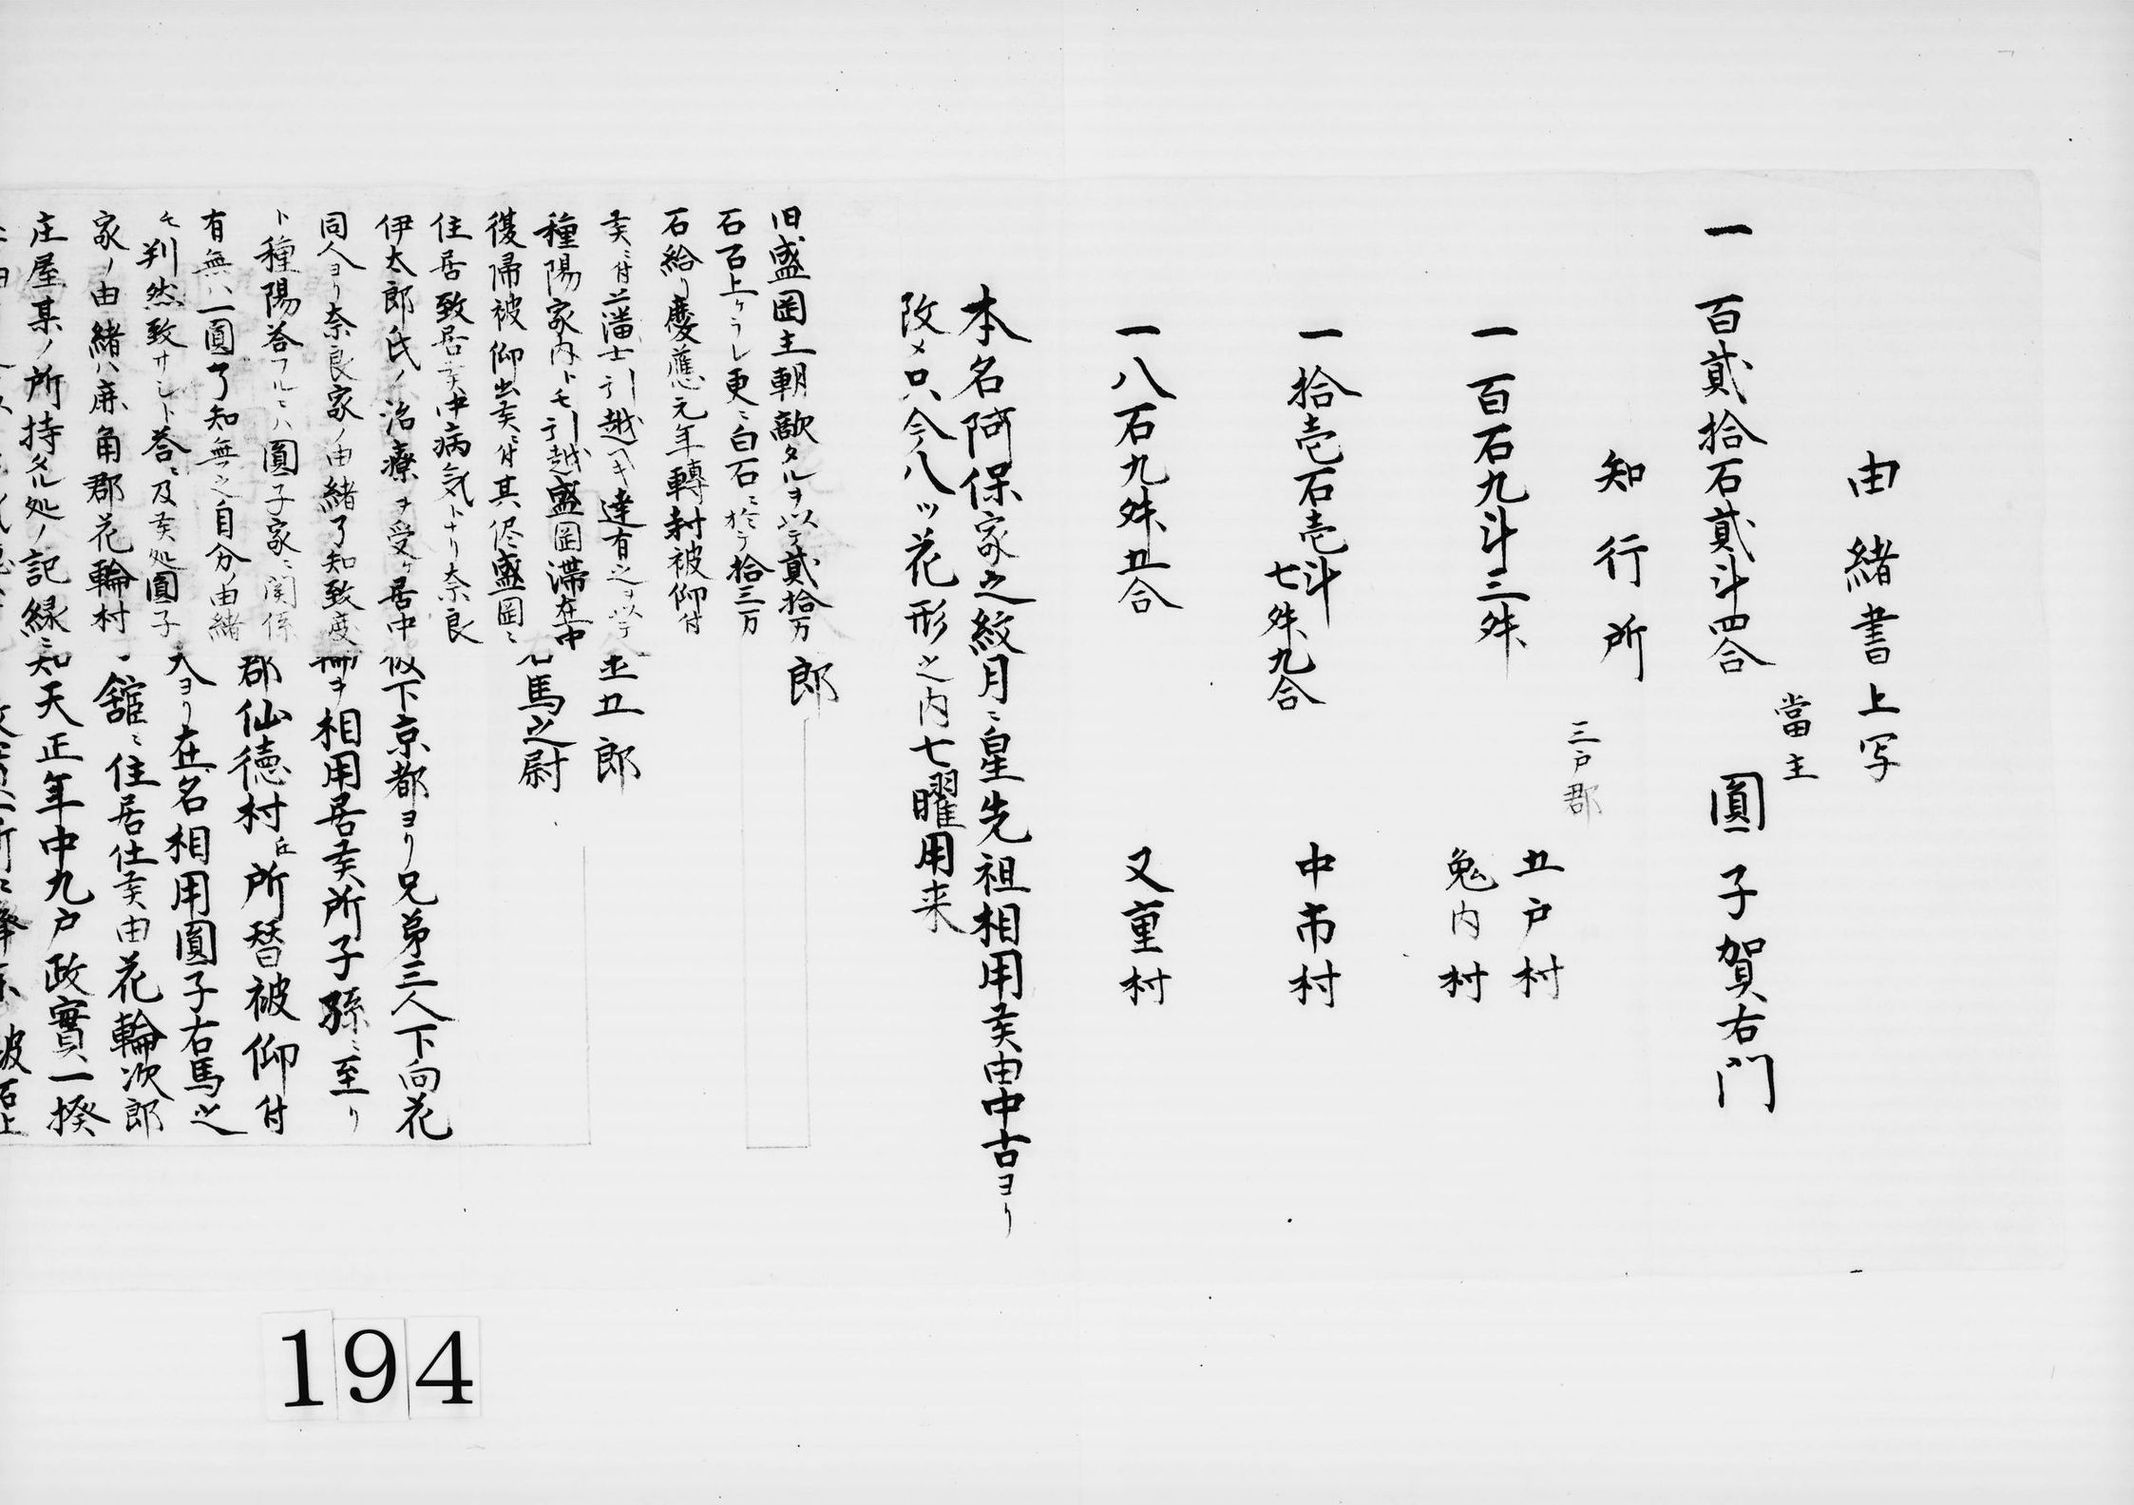 由緒書上写
當主
一 百貳拾石貳斗四合 圓子賀右門
知行所
三戸郡
五戸村
一 百石九斗三舛
兎内村
一 拾壱石壱斗
七舛九合
中市村
一 八石九舛五合 又重村
本名阿保家之紋月ニ星先祖相用候由中古ヨリ
改メ只今八ツ花形之内七曜用来
旧盛岡主朝敵タルヲ以テ貳拾万
石石上ケラレ更ニ白石ニ於テ拾三万
石給リ慶應元年轉封被仰付
候ニ付藩士引越ヘキ達有之ヲ以テ
種陽家内トモ引越盛岡滞在中
復帰被仰出候ニ付其侭盛岡ニ
住居致居候中病気トナリ奈良
伊太郎氏ノ治療ヲ受ケ居中
同人ヨリ奈良家ノ由緒了知致度
ト種陽答フルニハ圓子家ニ関係
有無ハ一圓了知無之自分ノ由緒
モ判然致サシト答ニ及候処圓子
家ノ由緒ハ鹿角郡花輪村
庄屋某ノ所持タル処ノ記録ニ
郎
五郎
右馬之尉
下京都ヨリ兄弟三人下向花
相用居候所子孫ニ至リ
郡仙徳村ヘ所替被仰付
ヨリ在名相用圓子右馬之
舘ニ住居仕候由花輪次郎
天正年中九戸政實一揆
194